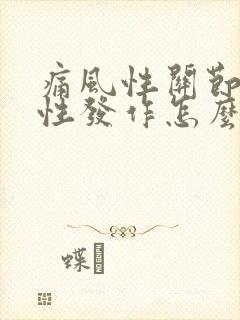 痛風性關節
性發作怎麼
蝶